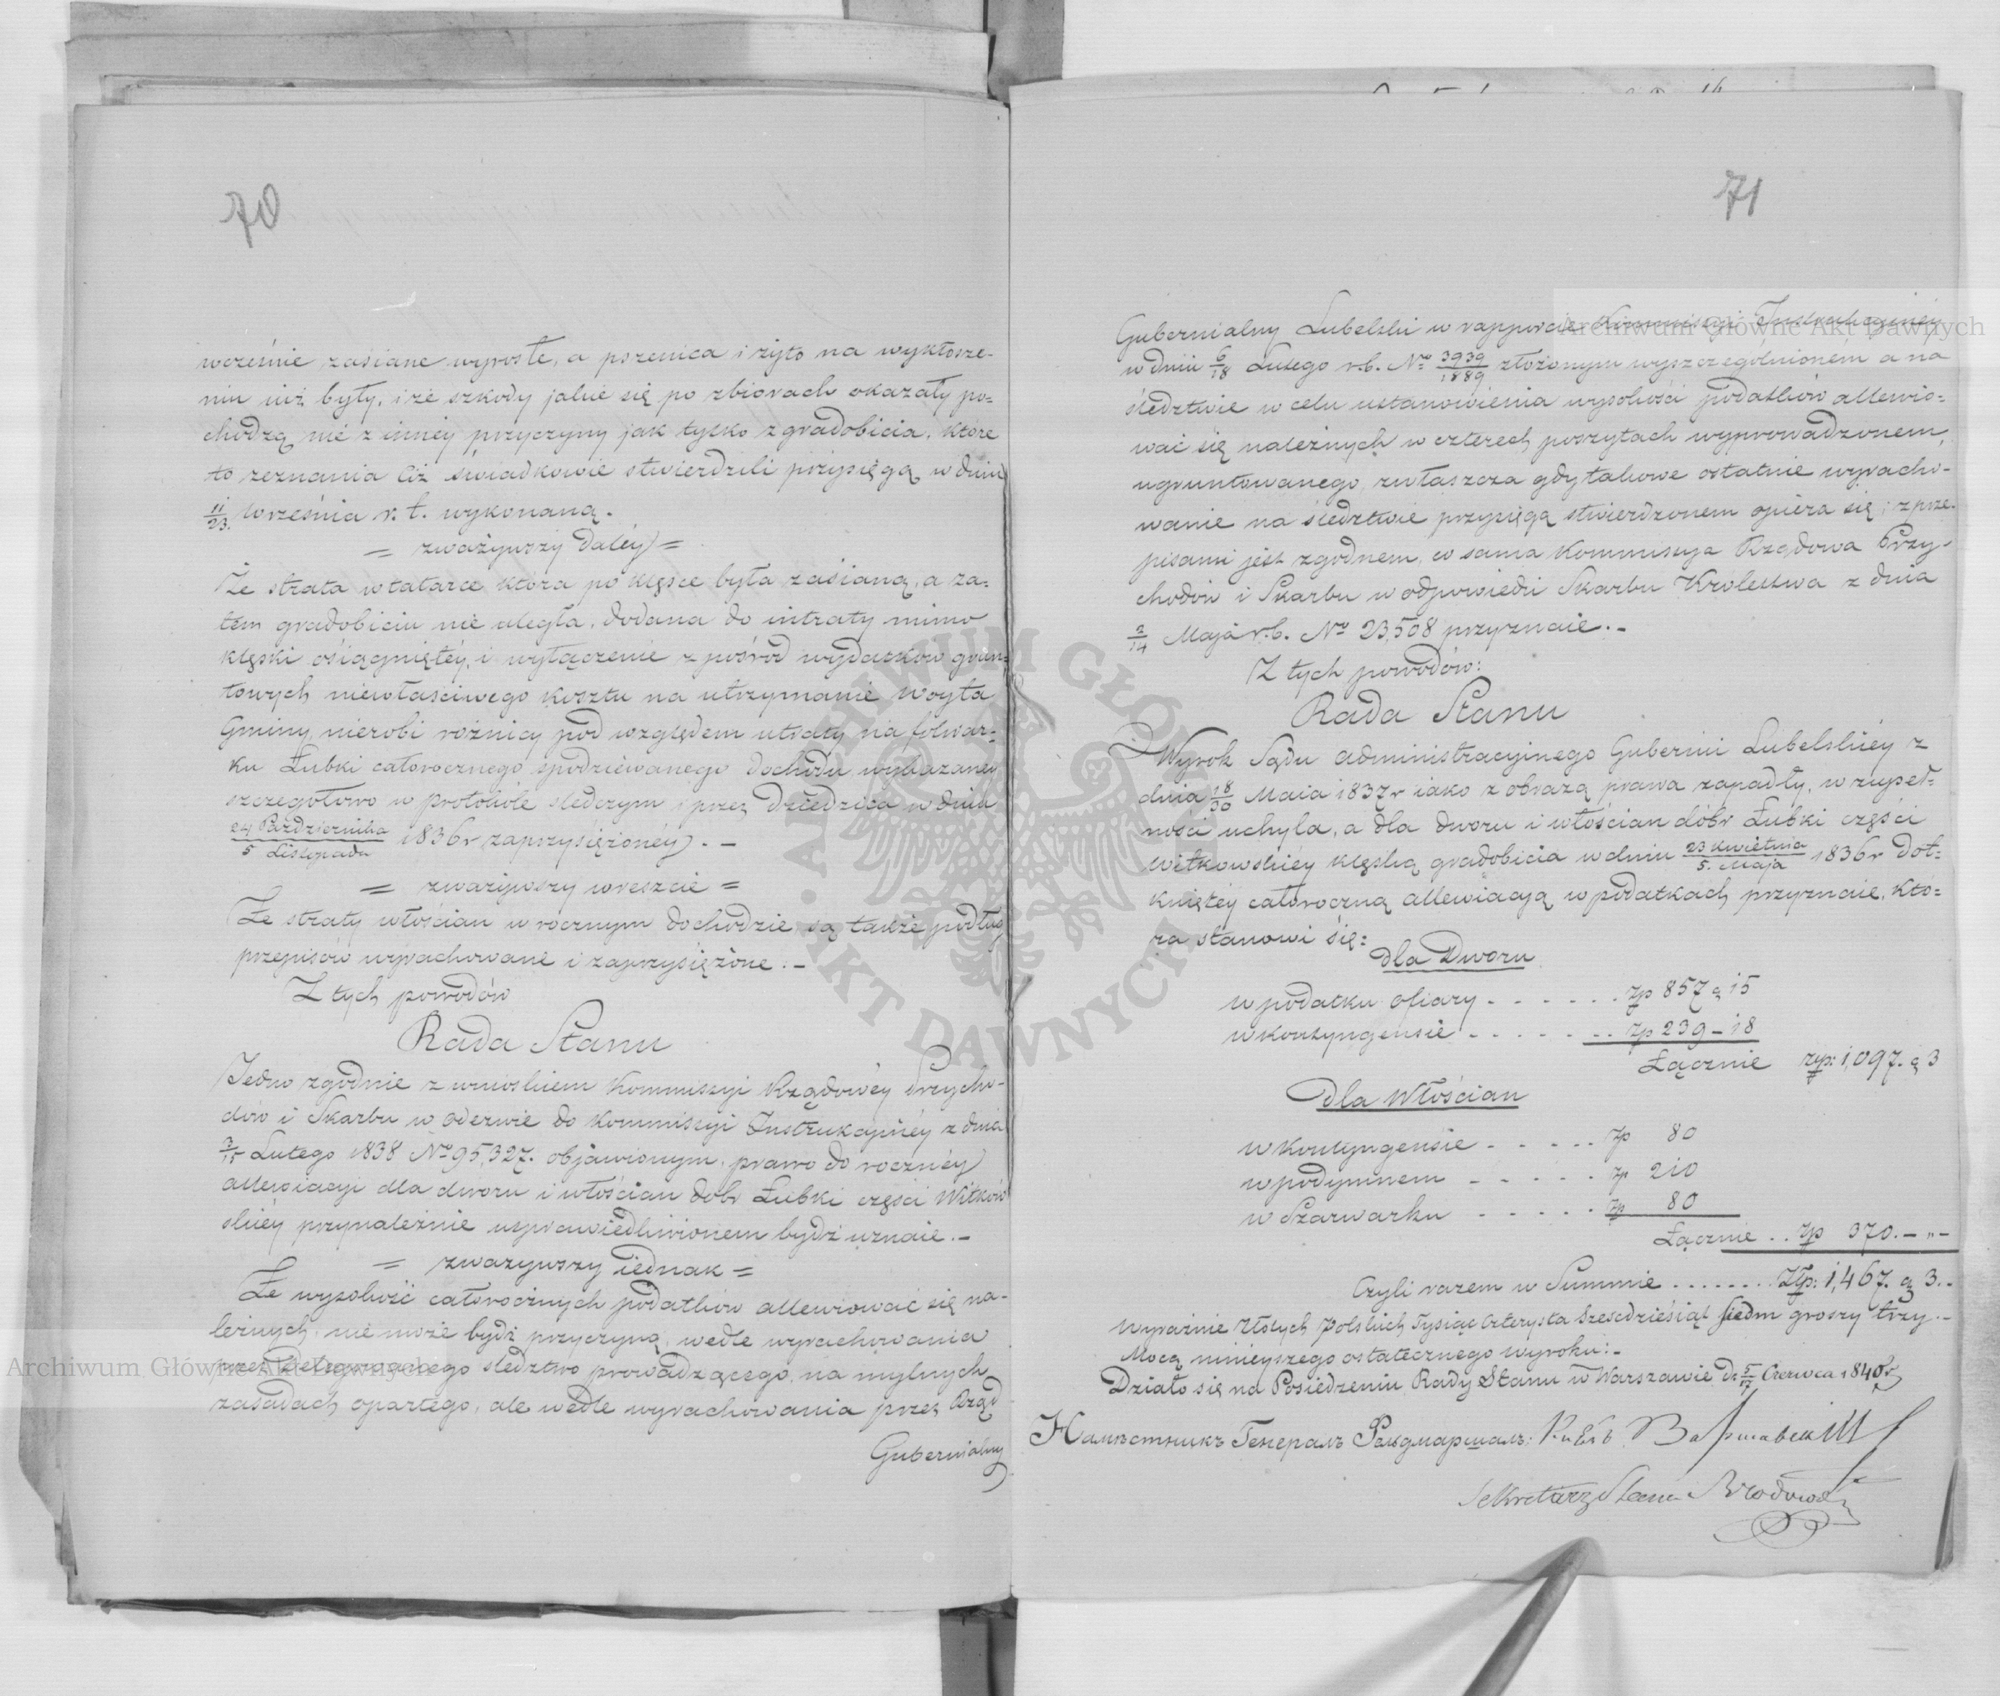 70
wcześnie zasiane wyrosłe, a pszenica i żyto na wykłosze-
niu iuż były, i że szkody jakie się po zbiorach okazały po-
chodzą nie z inney przyczyny jak tylko z gradobicia, które
to zeznania ciż świadkowie stwierdzili przysięgą w dniu
11/23 Września r. t. wykonaną.
= zważywszy daléy =
Że strata w tatarce która po klęsce była zasianą, a za-
tém gradobiciu nie uległa, dodana do intraty mimo
klęski osiągniętéy, i wyłączenie z pośród wydatków grun-
towych niewłaściwego kosztu na utrzymanie Woyta
Gminy, nierobi różnicy pod względem utraty na folwar-
ku Łubki całorocznego spodziewanego dochodu wykazanéy
szczegółowo w protokóle śledczym i przez Dziedzica w dniu
24 Października / 5 Listopada 1836 r zaprzysiężonéy. —
= zważywszy wreszcie =
Że straty włościan w rocznym dochodzie są także podług
przepisów wyrachowane i zaprzysiężone. —
Z tych powodów
Rada Stanu
Jedno zgodnie z wnioskiem Kommissyi Rządowéy Przycho-
dów i Skarbu w odezwie do Kommissyi Instrukcyinéy z dnia
3/15 Lutego 1838 No 95,327. objawionym, prawo do rocznéy
allewiacyi dla dworu i włościan dóbr Łubki części Witkow
skiéy przynależnie usprawiedliwionem bydź uznaie. —
= zważywszy iednak =
Że wysokość całorocznych podatków allewiować się na-
leżnych, nie może bydź przyczyną, wedle wyrachowania
przez Delegowanego śledztwo prowadzącego, na mylnych
zasadach opartego, ale wedle wyrachowania przez Rząd
Gubernialny
71
Gubernialny Lubelski w rapporcie Kommissyi Instrukcyinéy
w dniu 6/18 Lutego r.b. No 3939/1889 złożonym wyszczególnioném a na
śledztwie w celu ustanowienia wysokości podatków allewio-
wać się należnych w czterech poszytach wyprowadzonem,
ugruntowanego, zwłaszcza gdy takowe ostatnie wyracho-
wanie na śledztwie przysięgą stwierdzonem opiera się i z prze-
pisami jest zgodnem, co sama Kommissya Rządowa Przy-
chodów i Skarbu w odpowiedzi Skarbu Królestwa z dnia
2/14 Maja r.b. No 23,508 przyznaie. —
Z tych powodów:
Rada Stanu
Wyrok Sądu administracyjnego Gubernii Lubelskiéy z
dnia 18/30 Maia 1837 r iako z obrazą prawa zapadły, w zupeł-
ności uchyla, a dla dworu i włościan dóbr Łubki części
Witkowskiey klęską gradobicia w dniu 23 Kwietnia / 5. Maja 1836 r dot-
kniętéy całoroczną allewiacyą w podatkach przyznaie, Któ-
ra stanowi się:
dla Dworu
w podatku ofiary . . . . . . zp 857 g 15
w kontyngensie . . . . . . . zp 239 — 18
Łącznie zp: 1,097. g 3
dla Włościan
w Kontyngensie . . . . . zp 80
w podymnem . . . . . zp 210
w Szarwarku . . . . . zp 80
Łącznie . . zp 370. — „ —
Czyli razem w Summie . . . . . . . Złp: 1,467. g 3. —
Wyraźnie złotych polskich Tysiąc Czterysta Szesdziesiąt Siedm groszy trzy. —
Mocą ninieyszego ostatecznego wyroku: —
Działo się na Posiedzeniu Rady Stanu w Warszawie d. 5/17 Czerwca 1840 r
Намѣстникъ Генералъ Фельдмаршалъ: Князь Варшавскій
Sekretarz Stanu Brodowski
Archiwum Główne Akt Dawnych
Archiwum Główne Akt Dawnych
ARCHIWUM GŁÓWNE AKT DAWNYCH